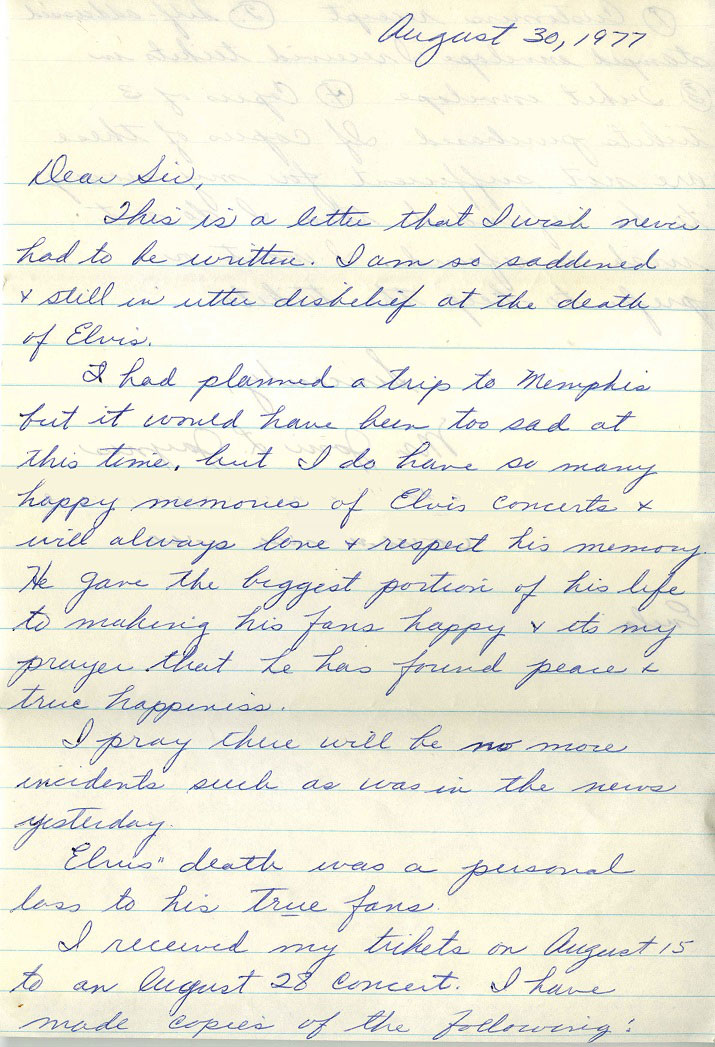 August 30, 1977
Dear Sir,
This is a letter that I wish never
had to be written. I am so saddened
& still in utter disbelief at the death
of Elvis.
I had planned a trip to Memphis
but it would have been too sad at
this time, but I do have so many
happy memories of Elvis concerts &
will always love & respect his memory.
He gave the biggest portion of his life
to making his fans happy & its my
prayer that he has found peace &
true happiness.
I pray there will be no more
incidents such as was in the news
yesterday.
Elvis" death was a personal
loss to his true fans.
I received my tickets on August 15
to an August 28 concert. I have
made copies of the following: